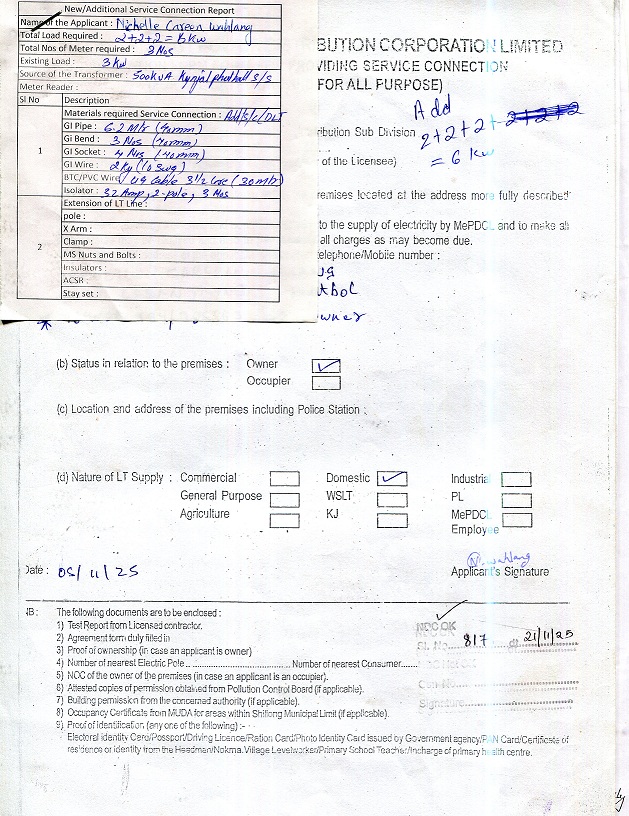 New/Additional Service Connection Report
Name of the Applicant : Nichelle Careen Wahlang
Total Load Required : 2+2+2 = 6 KW
Total Nos of Meter required : 3 Nos
Existing Load : 3 KW
Source of the Transformer : 500KVA S/S
Meter Reader :
Sl No Description
1
Materials required Service Connection : Add/S/C/DLT
GI Pipe : 6.2 Mtr (40mm)
Gi Bend : 3 Nos (40mm)
GI Socket : 4 Nos (40mm)
GI Wire : 2 Kg (10 swg)
BTC/PVC Wire : UG Cable 3½ Core (30Mtr)
Isolator : 32 Amp, 2-pole, 3 Nos
2
Extension of LT Line :
pole :
X Arm :
Clamp :
MS Nuts and Bolts :
Insulators :
ACSR :
Stay set :
BUTION CORPORATION LIMITED
VIDING SERVICE CONNECTION
FOR ALL PURPOSE)
Add
ribution Sub Division 2+2+2 2+2+2
of the Licensee) = 6 KW
remises located at the address more fully described
to the supply of electricity by MePDCL and to make all
all charges as may become due.
elephone/Mobile number :
owner
(b) Status in relation to the premises : Owner ✓
Occupier
(c) Location and address of the premises including Police Station :
(d) Nature of LT Supply : Commercial Domestic ✓ Industrial
General Purpose WSLT PL
Agriculture KJ MePDCL
Employee
N. Wahlang
Date : 05/11/25 Applicant's Signature
NB : The following documents are to be enclosed :
1) Test Report from Licensed contractor.
2) Agreement form duly filled in
3) Proof of ownership (in case an applicant is owner)
4) Number of nearest Electric Pole .......... Number of nearest Consumer......
5) NOC of the owner of the premises (in case an applicant is occupier).
6) Attested copies of permission obtained from Pollution Control Board (if applicable).
7) Building permission from the concerned authority (if applicable).
8) Occupancy Certificate from MUDA for areas within Shillong Municipal Limit (if applicable).
9) Proof of Identification (any one of the following) :-
Electoral Identity Card/Passport/Driving Licence/Ration Card/Photo Identity Card issued by Government agency/PAN Card/Certificate of
residence or identity from the Headman/Nokma.Village Levelworker/Primary School Teacher/Incharge of primary health centre.
NDC OK
Sl. No. 817 dt 21/11/25
Signature